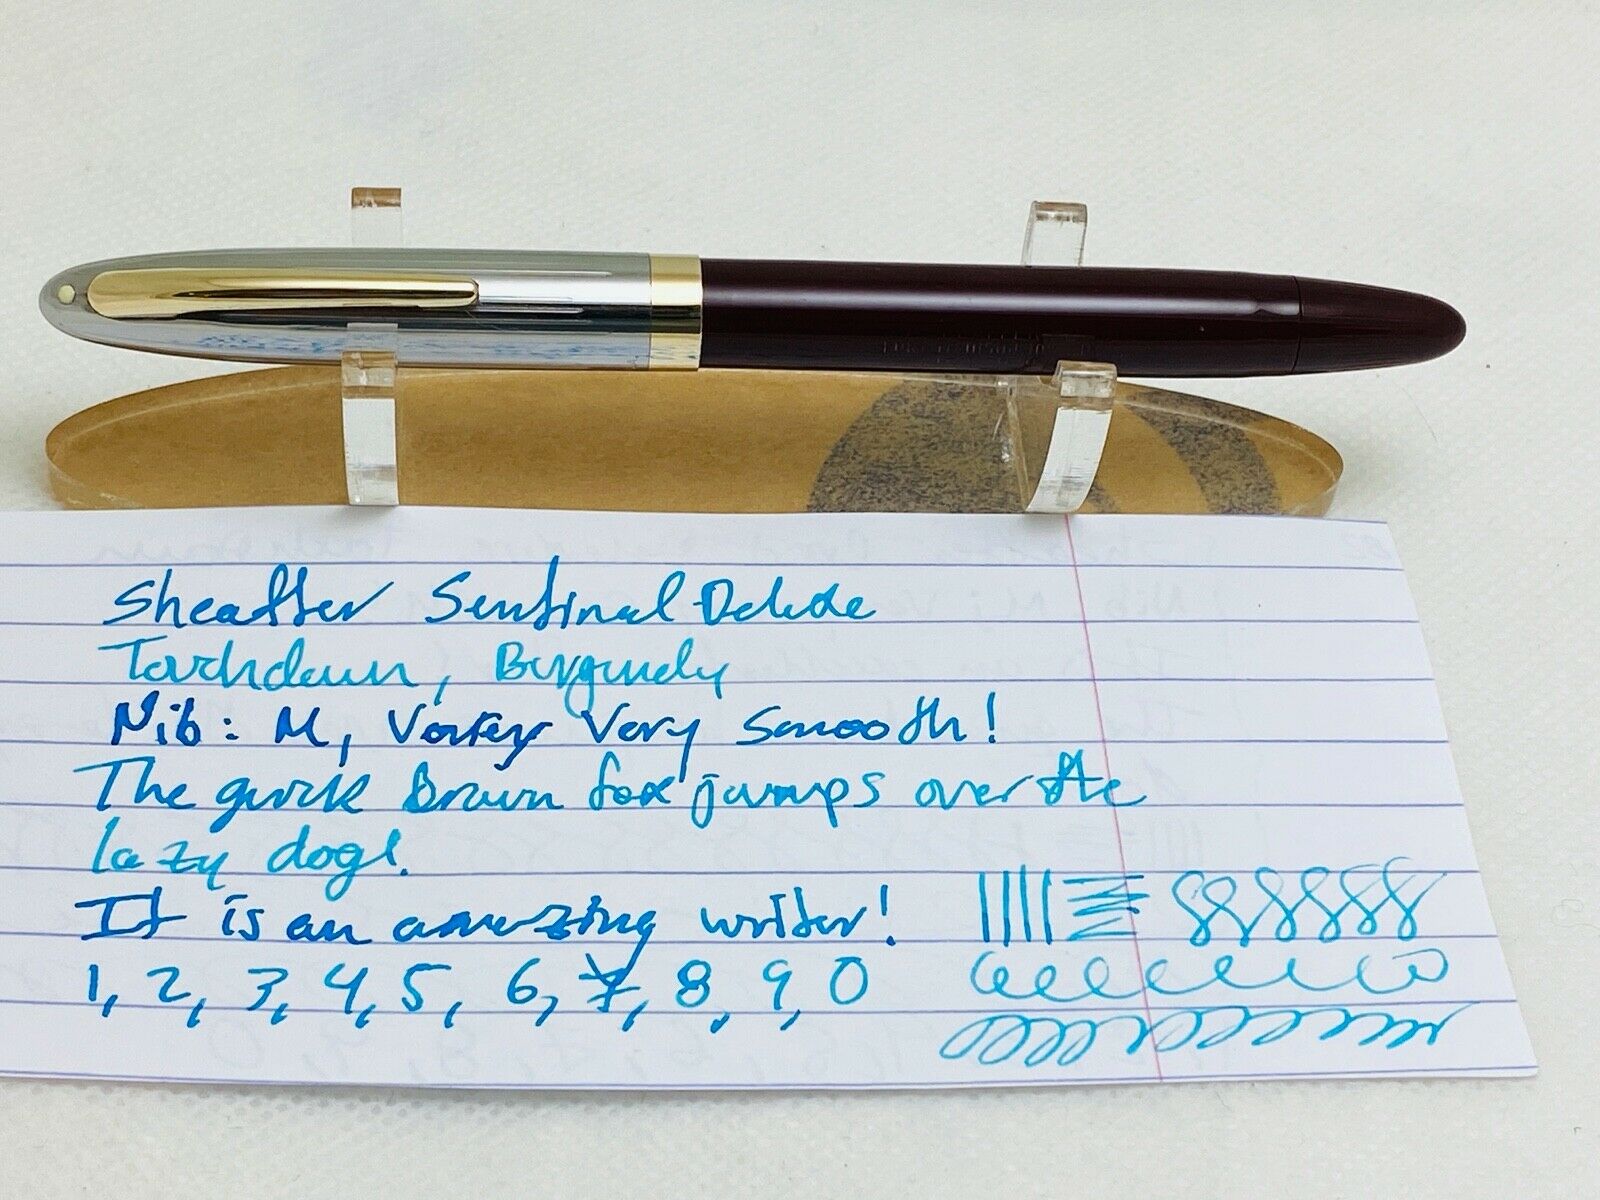 Sheaffer Sentinal Deluxe
Touchdown, Burgundy
Nib: M, Very Very Smooth!
The quick brown fox jumps over the
lazy dog!
It is an amazing writer!
1, 2, 3, 4, 5, 6, 7, 8, 9, 0